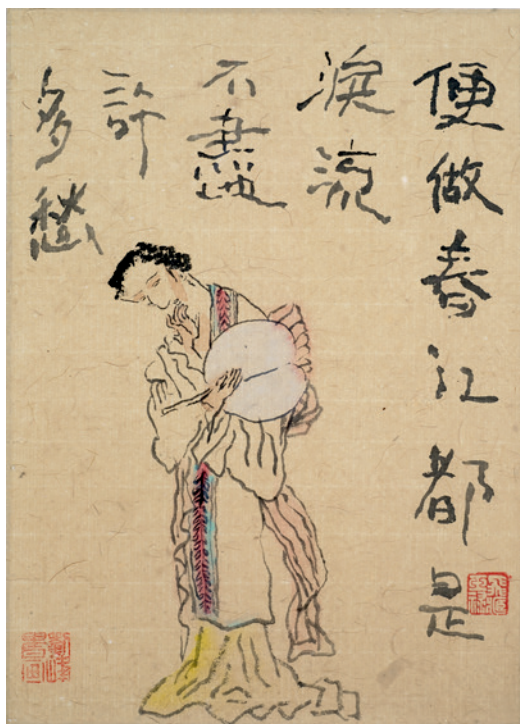 便做春江都是
淚流
不盡
許
多愁